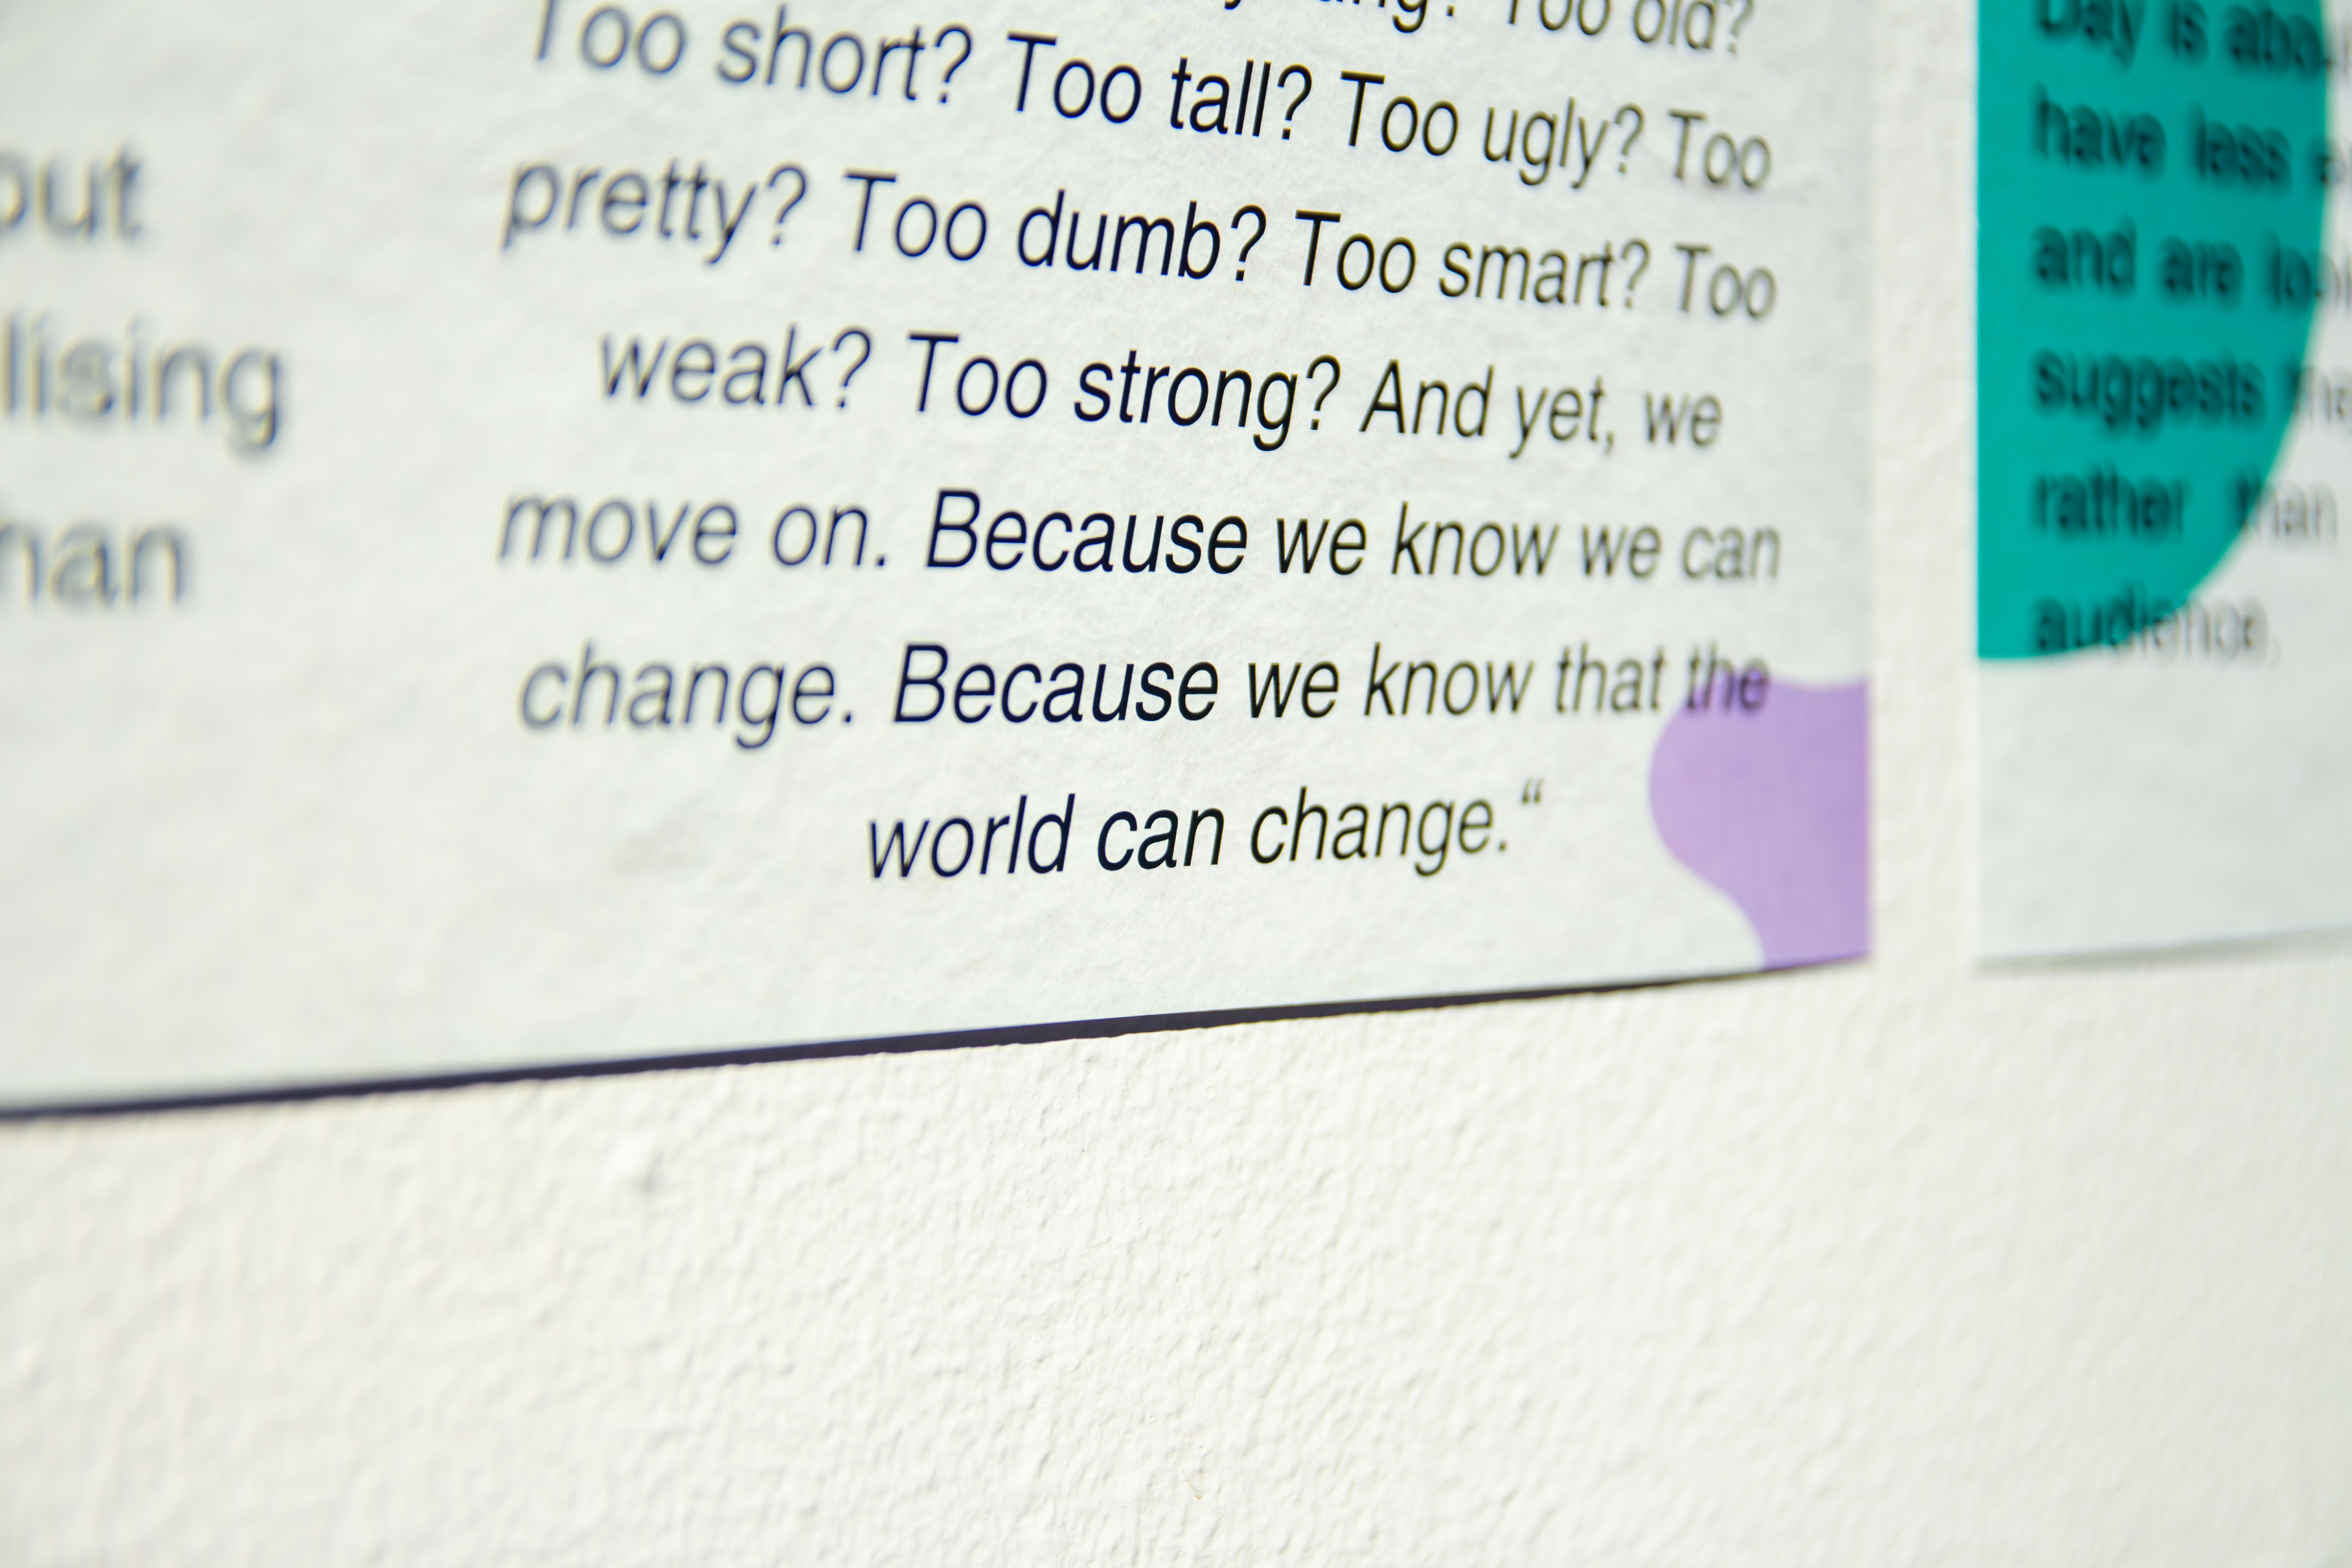 Too old?
Too short? Too tall? Too ugly? Too
pretty? Too dumb? Too smart? Too
weak? Too strong? And yet, we
move on. Because we know we can
change. Because we know that the
world can change.“
Day is
have less
and are
suggests
rather than
audience.